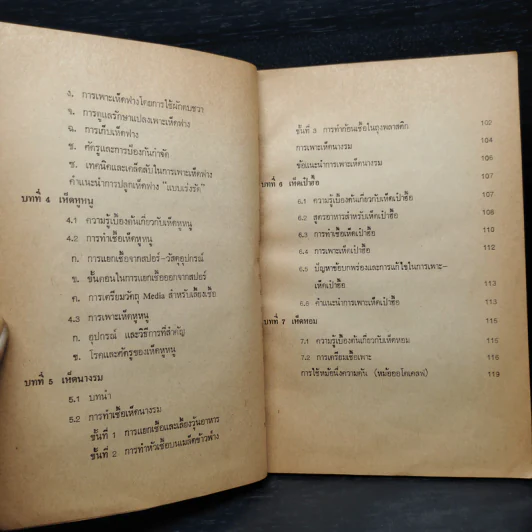 ง. การเพาะเห็ดฟางโดยการใช้ผักตบชวา
จ. การดูแลรักษาแปลงเพาะเห็ดฟาง
ฉ. การเก็บเห็ดฟาง
ช. ศัตรูและการป้องกันกำจัด
ซ. เทคนิคและเคล็ดลับในการเพาะเห็ดฟาง
คำแนะนำการปลูกเห็ดฟาง "แบบเร่งรัด"
บทที่ 4 เห็ดหูหนู
4.1 ความรู้เบื้องต้นเกี่ยวกับเห็ดหูหนู
4.2 การทำเชื้อเห็ดหูหนู
ก. การแยกเชื้อจากสปอร์-วัสดุอุปกรณ์
ข. ขั้นตอนในการแยกเชื้อออกจากสปอร์
ค. การเตรียมวัตถุ Media สำหรับเลี้ยงเชื้อ
4.3 การเพาะเห็ดหูหนู
ก. อุปกรณ์ และวิธีการที่สำคัญ
ข. โรคและศัตรูของเห็ดหูหนู
บทที่ 5 เห็ดนางรม
5.1 บทนำ
5.2 การทำเชื้อเห็ดนางรม
ขั้นที่ 1 การแยกเชื้อและเลี้ยงวุ้นอาหาร
ขั้นที่ 2 การทำหัวเชื้อบนเมล็ดข้าวฟ่าง
ขั้นที่ 3 การทำก้อนเชื้อในถุงพลาสติก 102
การเพาะเห็ดนางรม 104
ข้อแนะนำการเพาะเห็ดนางรม 106
บทที่ 6 เห็ดเป๋าฮื้อ 107
6.1 ความรู้เบื้องต้นเกี่ยวกับเห็ดเป๋าฮื้อ 107
6.2 สูตรอาหารสำหรับเห็ดเป๋าฮื้อ 108
6.3 การทำเชื้อเห็ดเป๋าฮื้อ 110
6.4 การเพาะเห็ดเป๋าฮื้อ 112
6.5 ปัญหาข้อบกพร่องและการแก้ไขในการเพาะ-
เห็ดเป๋าฮื้อ 112
6.6 คำแนะนำการเพาะเห็ดเป๋าฮื้อ 113
บทที่ 7 เห็ดหอม 115
7.1 ความรู้เบื้องต้นเกี่ยวกับเห็ดหอม 115
7.2 การเตรียมเชื้อเพาะ 116
การใช้หม้อนึ่งความดัน (หม้อออโตเคลฟ) 119